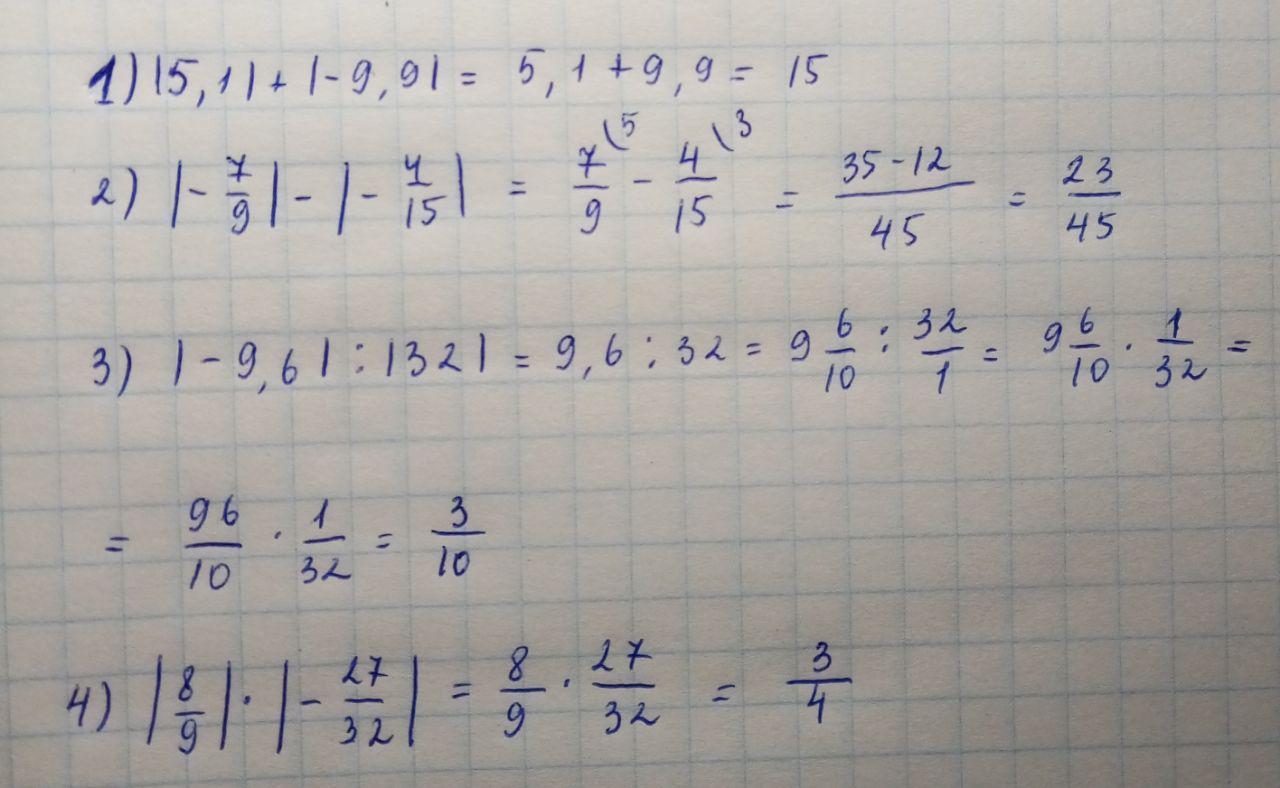 1) |5,1| + |-9,9| = 5,1 + 9,9 = 15
2) |-7/9| - |-4/15| = 7/9 \5 - 4/15 \3 = (35-12)/45 = 23/45
3) |-9,6| : |32| = 9,6 : 32 = 9 6/10 : 32/1 = 9 6/10 · 1/32 =
= 96/10 · 1/32 = 3/10
4) |8/9| · |-27/32| = 8/9 · 27/32 = 3/4